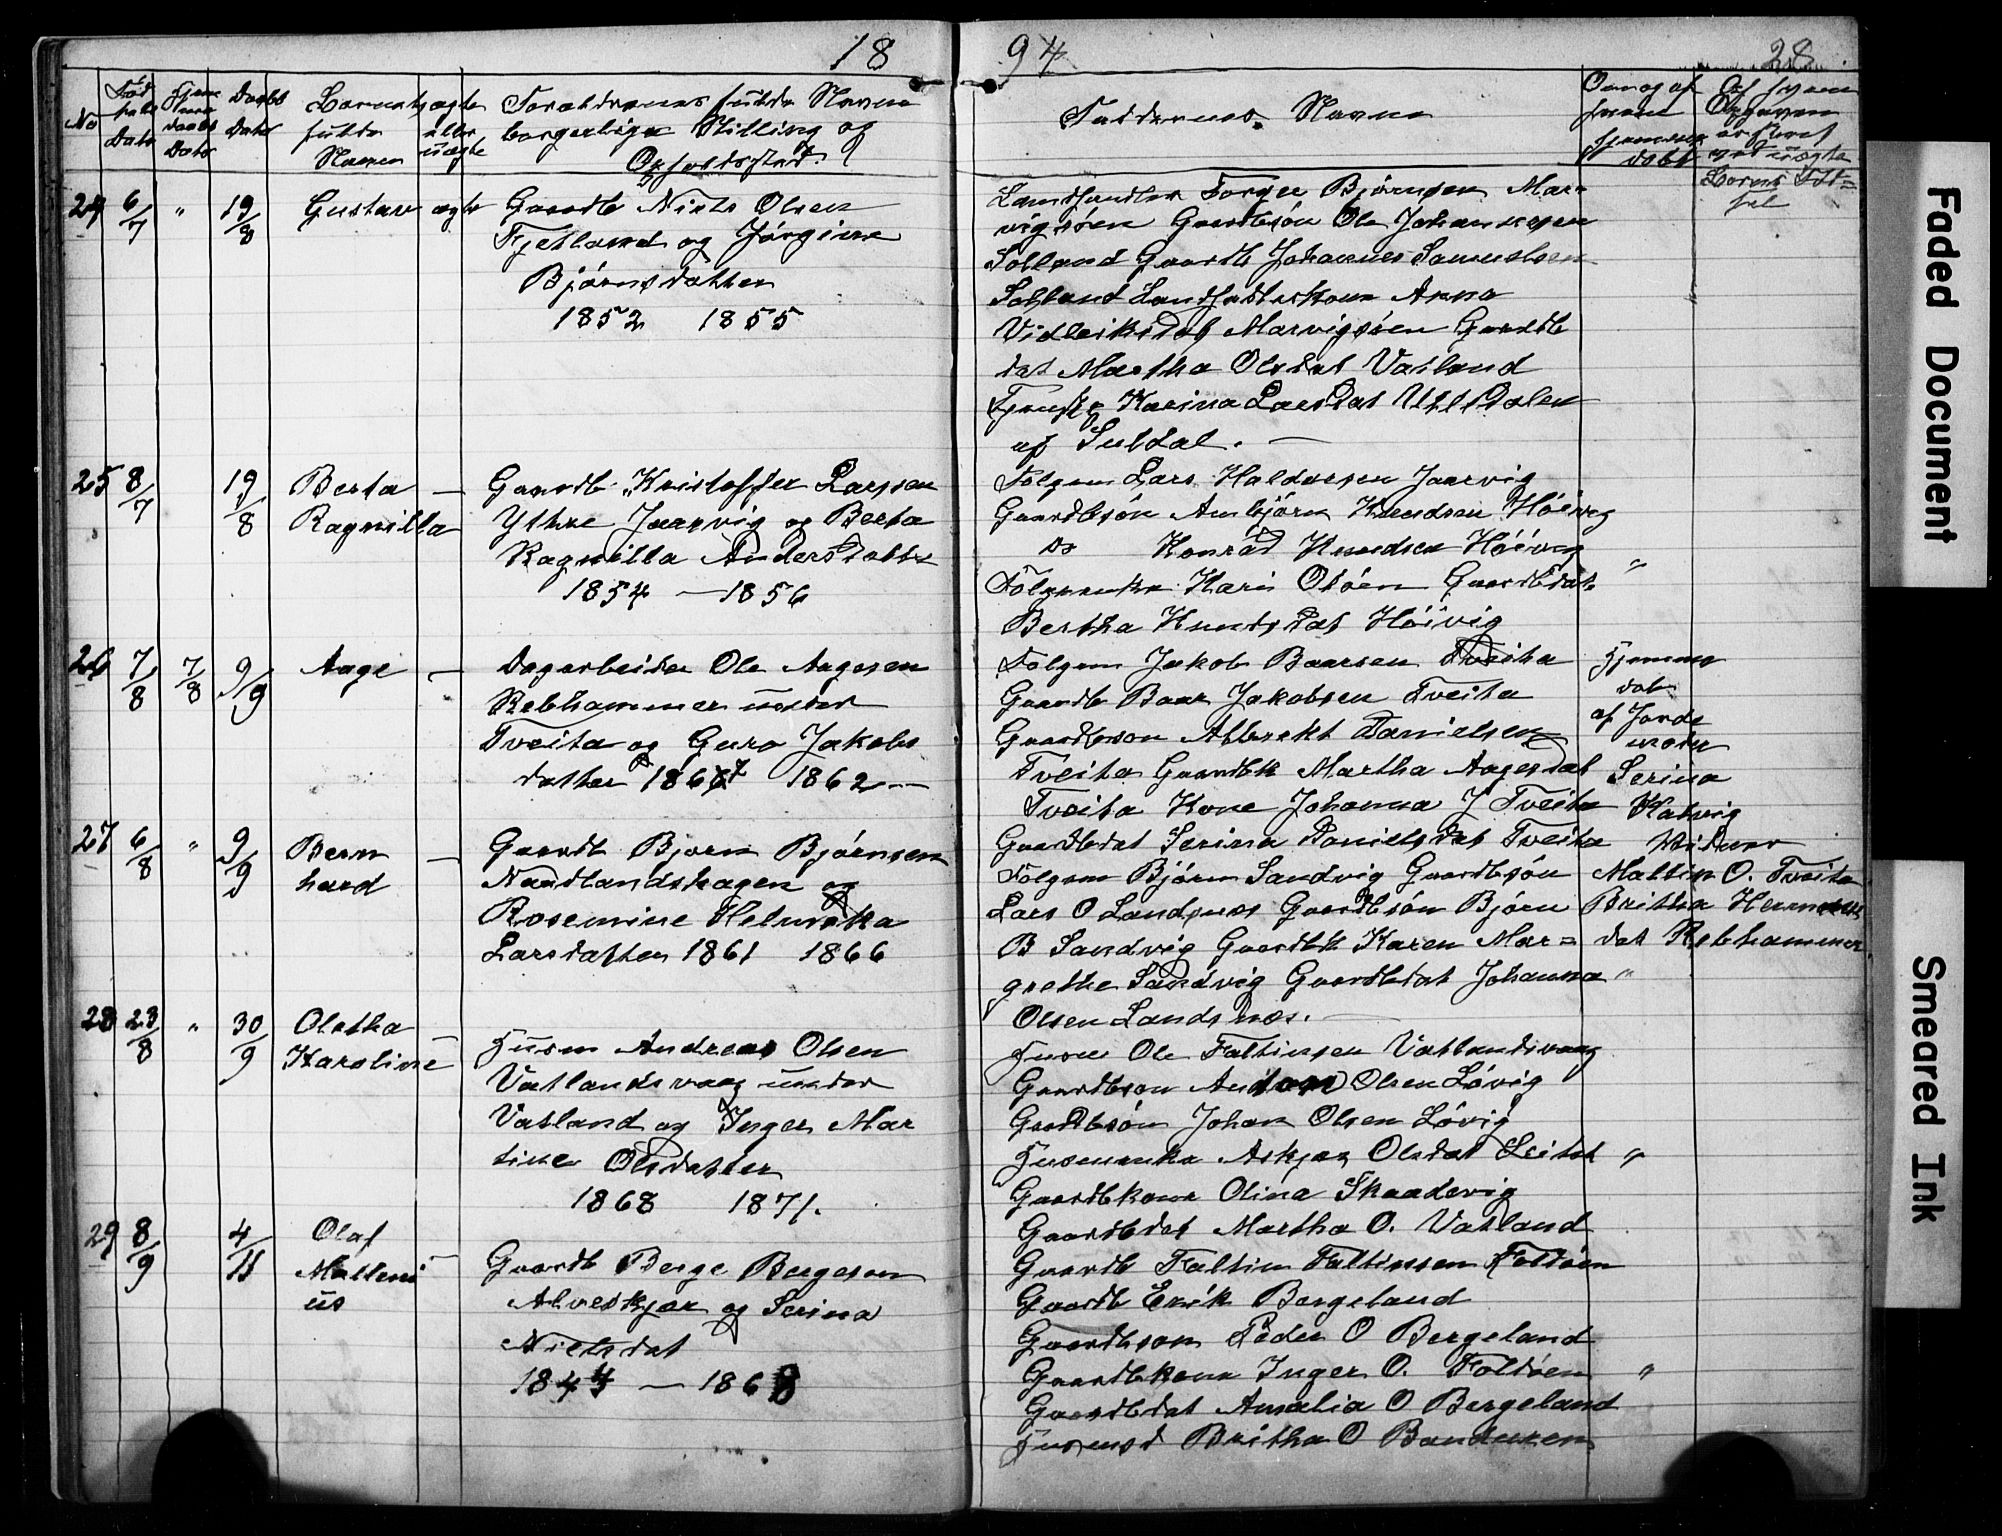 18 94 28
No
Fød
sels
Dato
Hjem
me
daabs
Dato
Daabs
Dato
Barnets
fulde
Navn
ægte
eller
uægte
Forældrenes fulde Navne
borgerlige Stilling og
Opholdssted
Faddernes Navne
Om og af
hvem
hjemme
døbt
Af hvem
Opgaven
er skreet
ved uægte
Barns Fød=
sel
24 6/7 " 19/8 Gustav ægte
Gaardb Niels Olsen
Fjetland og Jörgine
Björnsdatter
1852 1855
Landhandler Torger Björnsen Mar=
vigsöen Gaardbsön Ole Johannesen
Solland Gaardb Johannes Samuelsen
Solland Landhandlerkone Anna
Vidleiksdat Marvigsöen Gaardb
dat Martha Olsdat Vatland
Karina Larsdat
af Suldal. —
25 8/7 19/8 Berta
Ragnilla —
Gaardb Kristoffer Larssen
Ythre Jaarvig og Berta
Ragnilla Andersdatter
1854 — 1856
Folgem Lars Haldorsen Jaarvig
Gaardbsön Anbjörn Knudsen Höivig
do Konrad Knudsen Höivig
Fölgeenke Kari Otöen Gaardbdat "
Bertha Knudsdat Höivig
26 7/8 7/8 9/9 Aage —
Dagarbeider Ole Aagesen
Rebhammer under
Tveita og Guro Jakobs
datter 1867 1862 —
Folgem Jakob Baarsen Tveita
Gaardb Baar Jakobsen Tveita
Gaardbson Albrekt Danielsen
Tveita Gaardbk Martha Aagesdat
Tveita Kone Johanna J Tveita
Gaardbdat Serina Danielsdat Tveita
Hjemme
döb
af Jorde
moder
Serina
Katvig
Vidner
Maltin O. Tveita
Britha Hermans
dat Rebhammer
27 6/8 " 9/9 Bern
hard —
Gaardb Bjorn Björnsen
Naadlandshagen og
Rosemine Helmika
Larsdatter 1861 1866
Folgem Björn Sandvig Gaardbsön
Lars O Landsnes Gaardbsön Björn
B Sandvig Gaardbk Karen Mar=
grethe Sandvig Gaardbdat Johanna "
Olsen Landsnæs. —
28 23/8 " 30/9 Oletha
Karoline —
Husm Andreas Olsen
Vatlandsvaag under
Vatland og Inger Mar
tine Olsdatter
1868 1871.
Husm Ole Faltinsen Vatlandsvaag
Gaardbson Olsen Lövig
Gaardbsön Johan Olsen Lövig
Husmenke Askjær Olsdat "
Gaardbkone Olina Skaadevig
Gaardbdat Martha O. Vatland
29 8/9 4/11 Olaf
Malleni
us —
Gaardb Berge Bergeson
Alveskjær og Serina
Nielsdat
1844 — 1868
Gaardb Faltin Faltinsen Foldöen
Gaardb Erik Bergeland
Gaardbson Peder O Bergeland
Gaardbkone Inger O. Foldöen "
Gaardbdat Amalia O Bergeland
Britha O
Faded Document
Smeared Ink